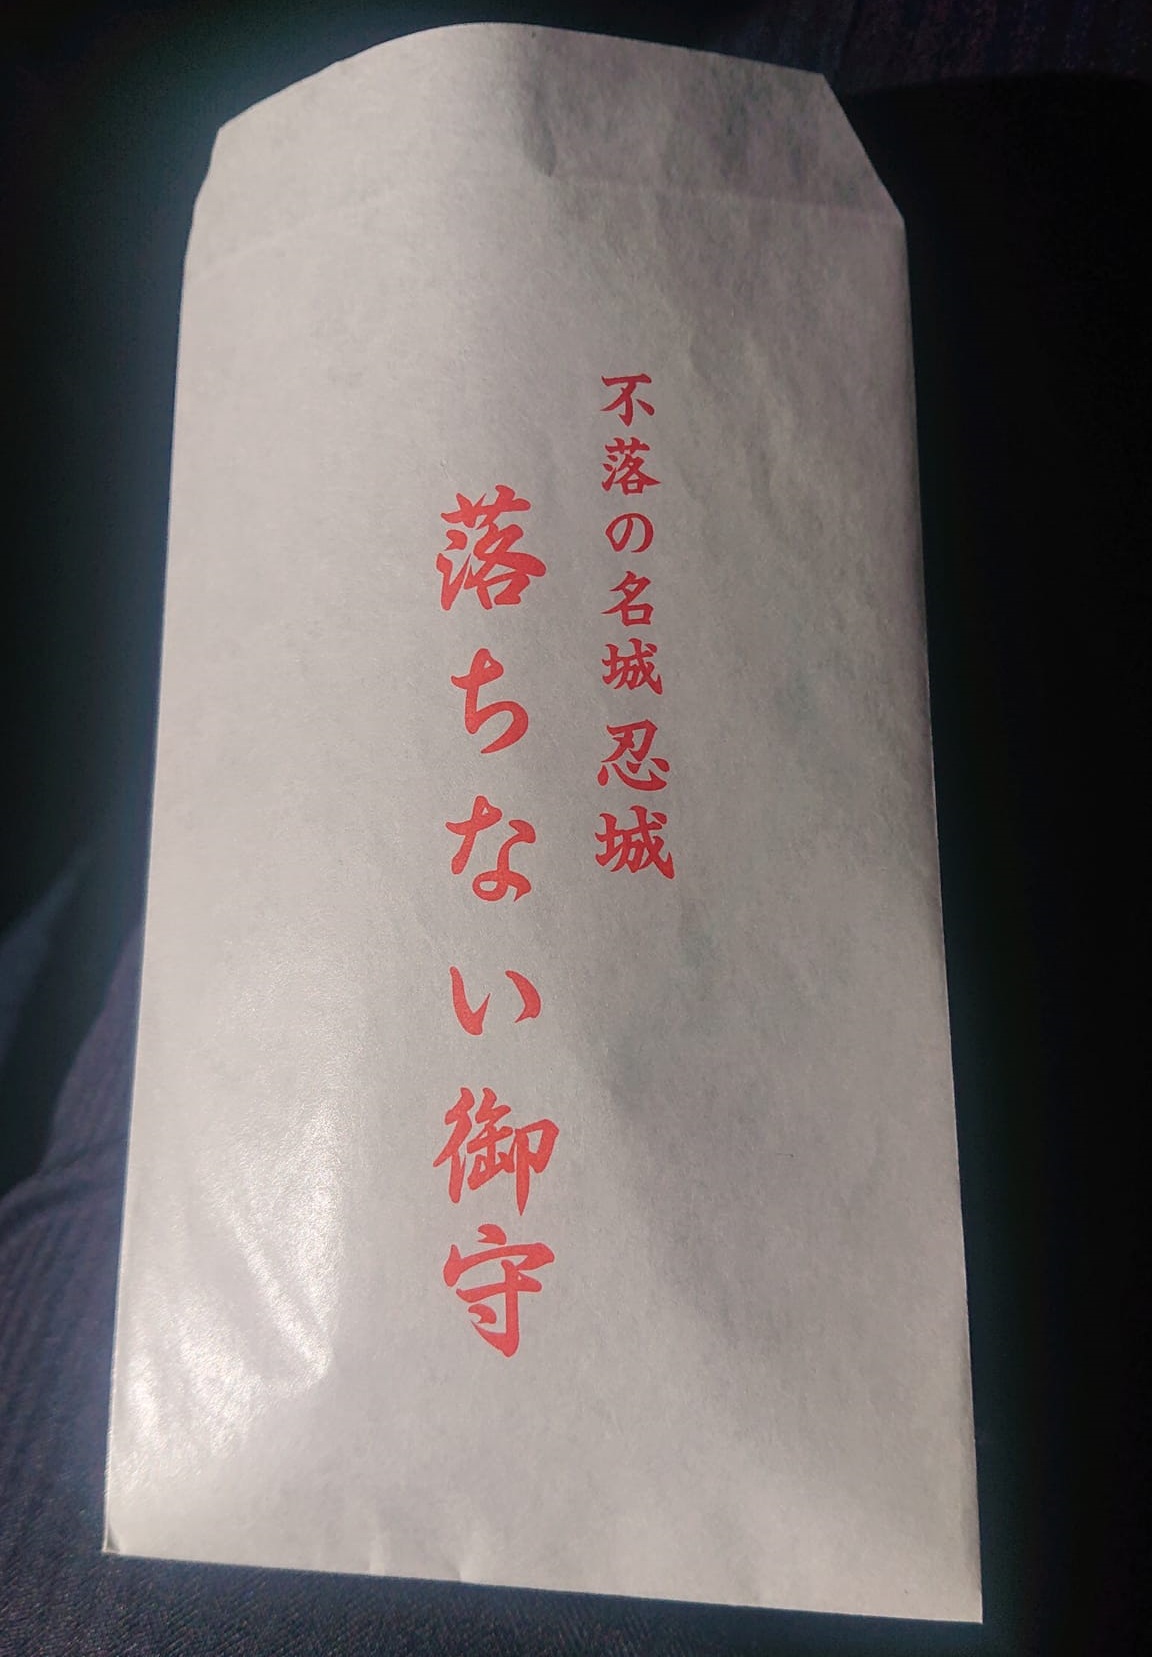 不落の名城 忍城
落ちない御守